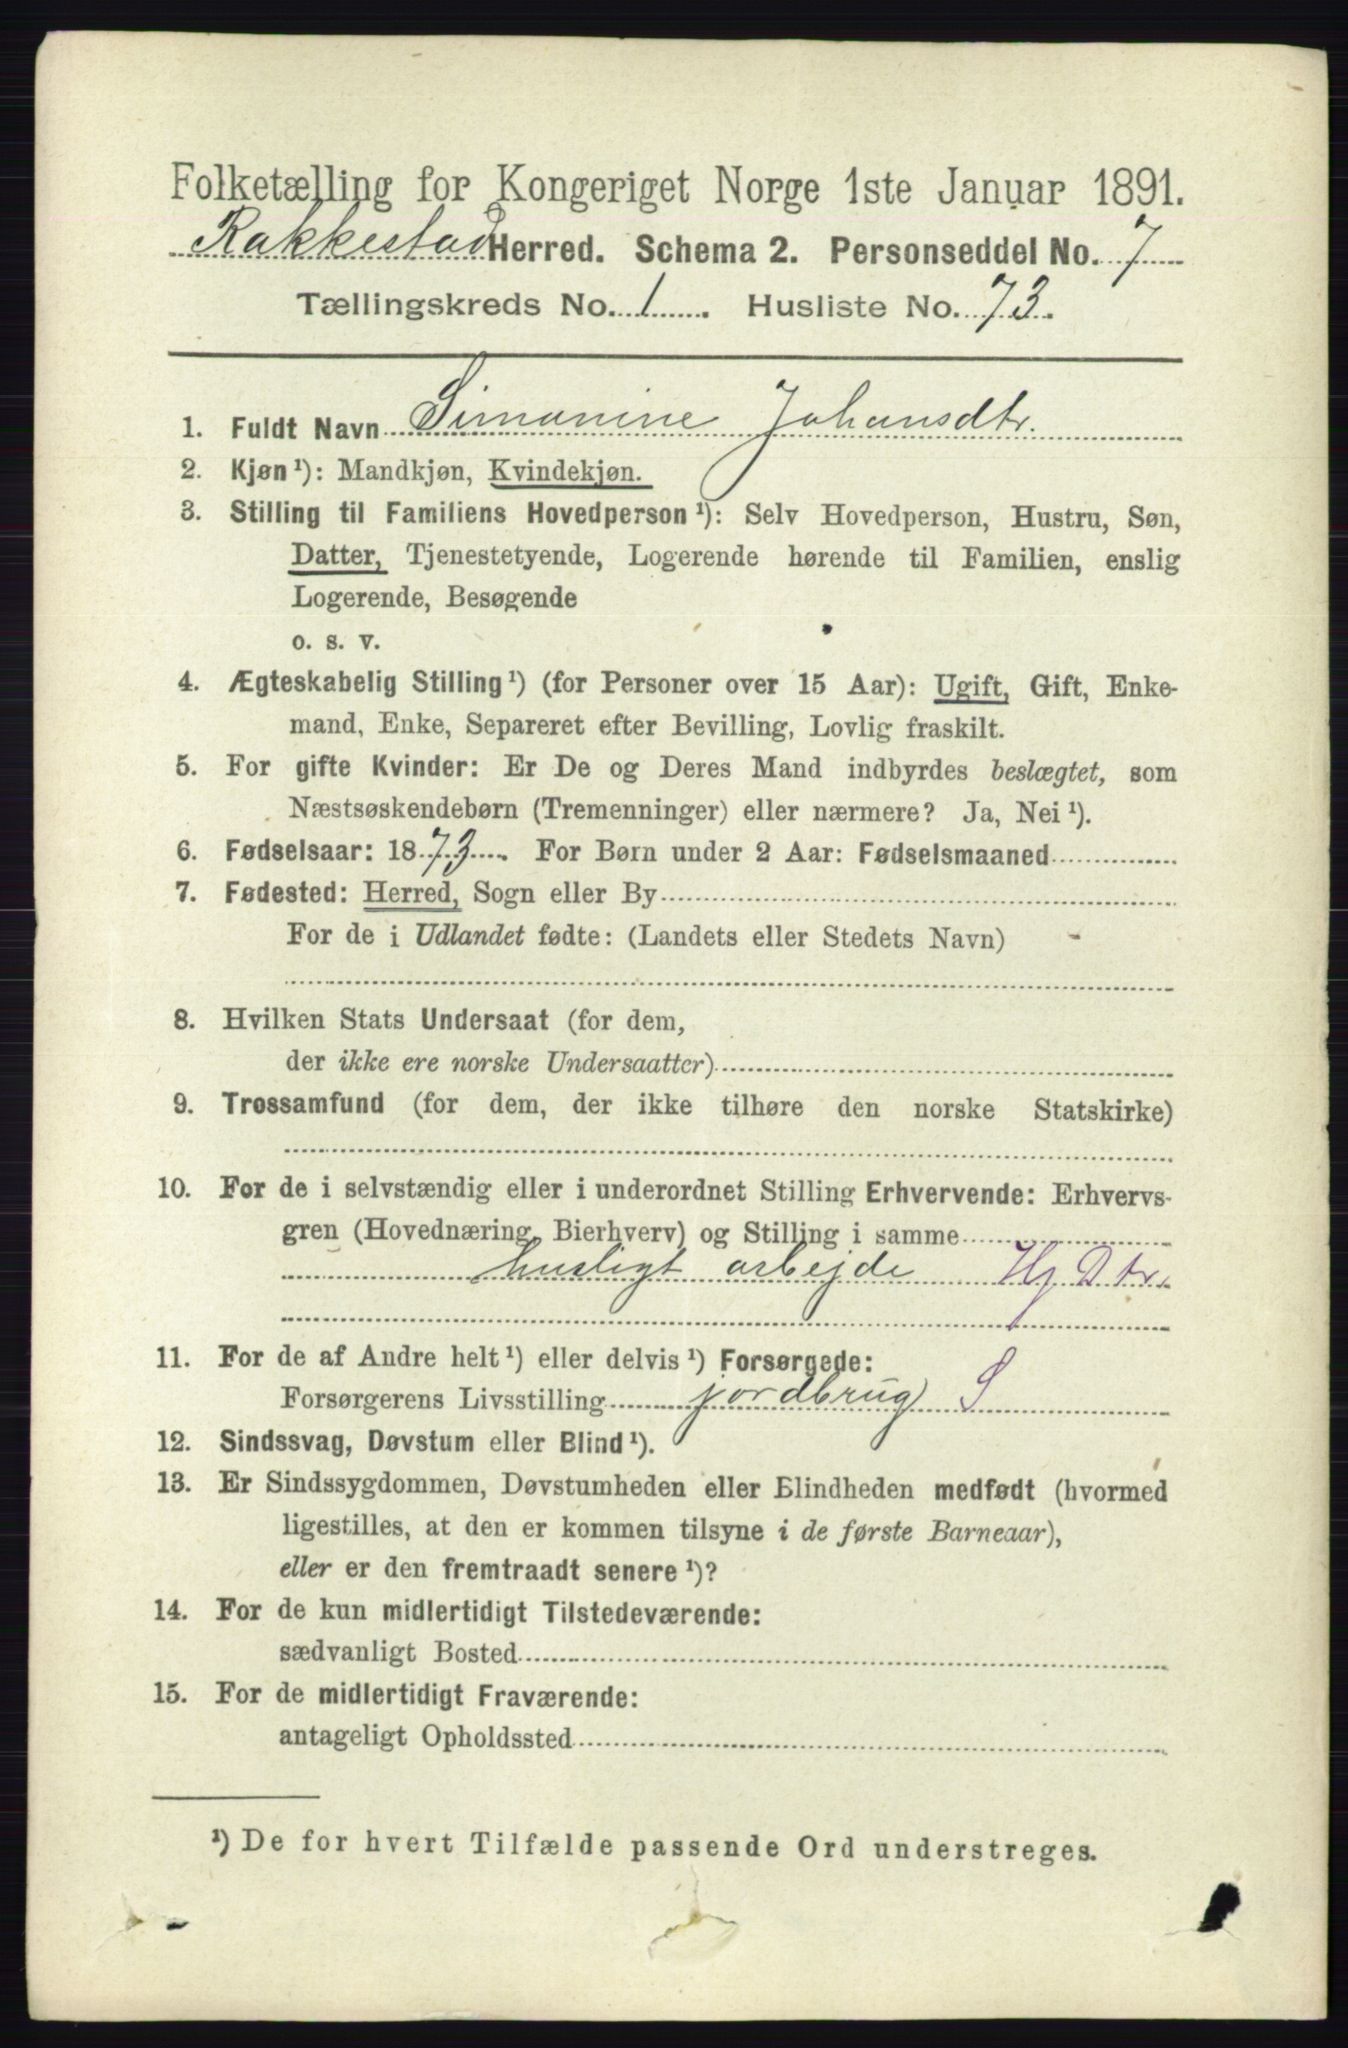 Folketælling for Kongeriget Norge 1ste Januar 1891.
Rakkestad Herred. Schema 2. Personseddel No. 7
Tællingskreds No. 1. Husliste No. 73.
1. Fuldt Navn Simonine Johansdtr.
2. Kjøn ¹): Mandkjøn, Kvindekjøn.
3. Stilling til Familiens Hovedperson ¹): Selv Hovedperson, Hustru, Søn,
Datter, Tjenestetyende, Logerende hørende til Familien, enslig
Logerende, Besøgende
o. s. v.
4. Ægteskabelig Stilling ¹) (for Personer over 15 Aar): Ugift, Gift, Enke-
mand, Enke, Separeret efter Bevilling, Lovlig fraskilt.
5. For gifte Kvinder: Er De og Deres Mand indbyrdes beslægtet, som
Næstsøskendebørn (Tremenninger) eller nærmere? Ja, Nei ¹).
6. Fødselsaar: 1873. For Børn under 2 Aar: Fødselsmaaned
7. Fødested: Herred, Sogn eller By
For de i Udlandet fødte: (Landets eller Stedets Navn)
8. Hvilken Stats Undersaat (for dem,
der ikke ere norske Undersaatter)
9. Trossamfund (for dem, der ikke tilhøre den norske Statskirke)
10. For de i selvstændig eller i underordnet Stilling Erhvervende: Erhvervs-
gren (Hovednæring, Bierhverv) og Stilling i samme
husligt arbejde Hj Dtr.
11. For de af Andre helt ¹) eller delvis ¹) Forsørgede:
Forsørgerens Livsstilling jordbrug S
12. Sindssvag, Døvstum eller Blind ¹).
13. Er Sindssygdommen, Døvstumheden eller Blindheden medfødt (hvormed
ligestilles, at den er kommen tilsyne i de første Barneaar),
eller er den fremtraadt senere ¹)?
14. For de kun midlertidigt Tilstedeværende:
sædvanligt Bosted
15. For de midlertidigt Fraværende:
antageligt Opholdssted
¹) De for hvert Tilfælde passende Ord understreges.